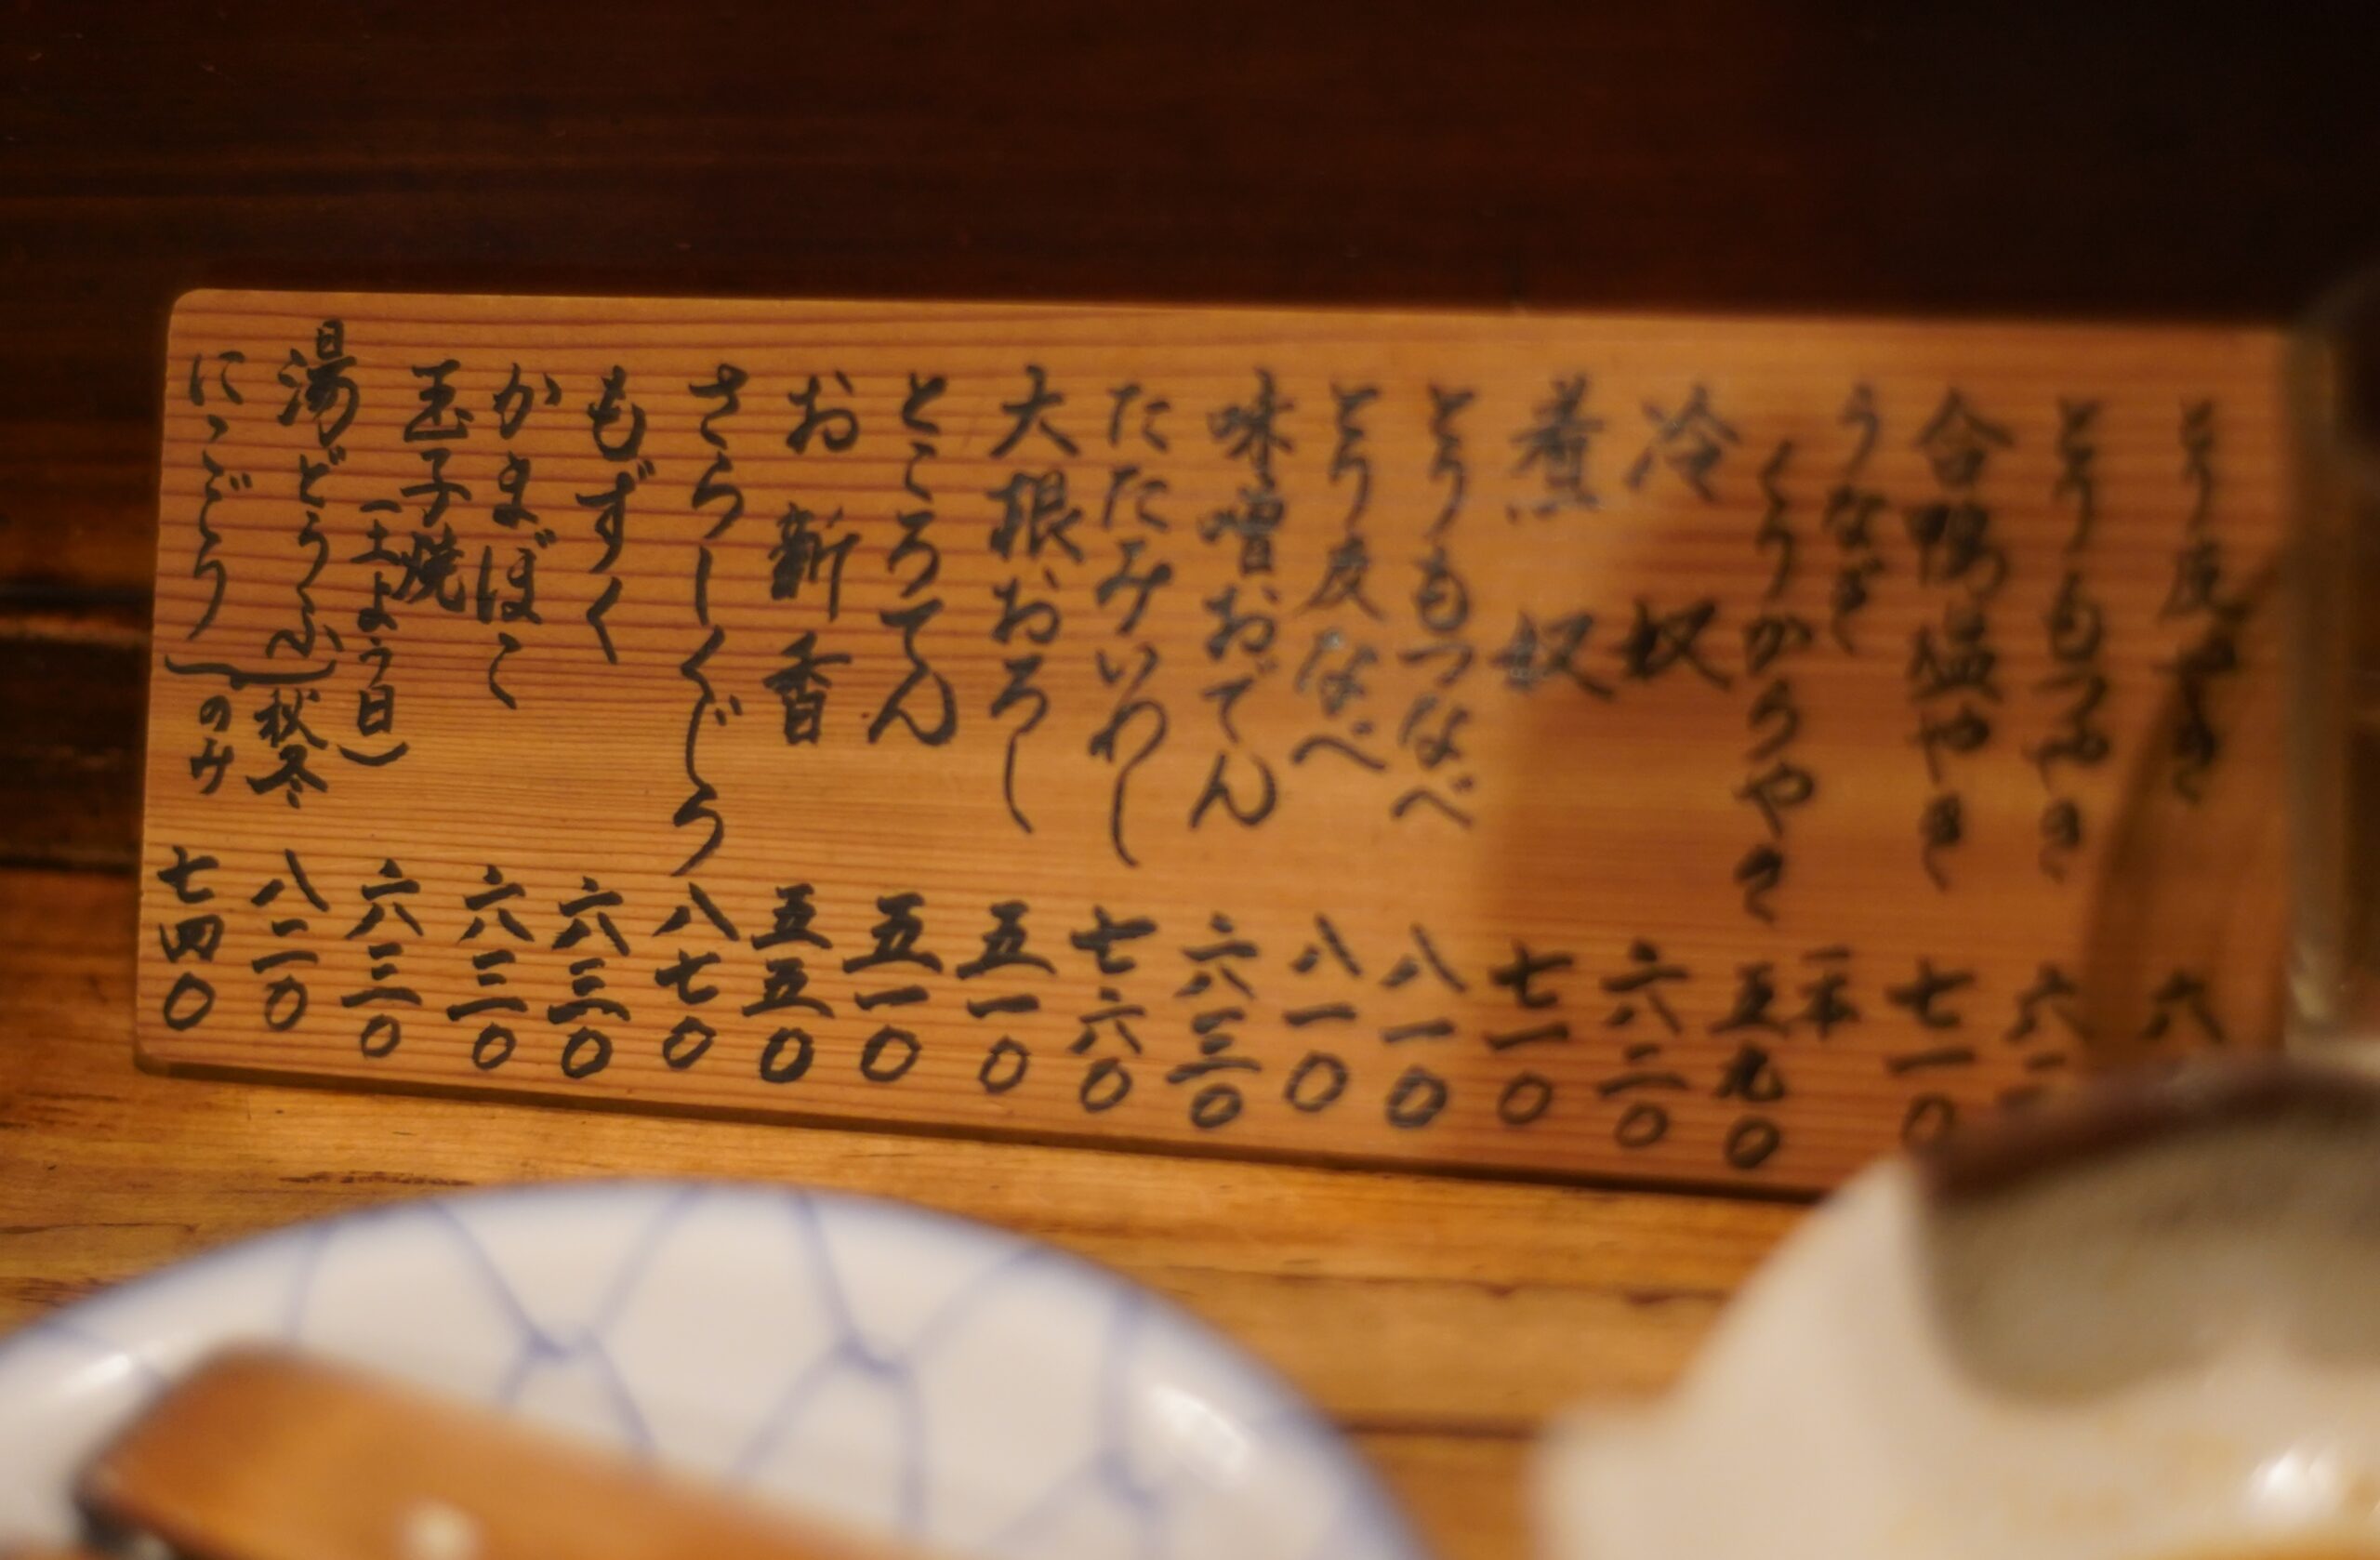 とり皮やき 六
とりもつやき 六一
合鴨塩やき 七一〇
うなぎ
くりからやき 一本 五九〇
冷奴 六二〇
煮奴 七一〇
とりもつなべ 八一〇
とり皮なべ 八一〇
味噌おでん 六三〇
たたみいわし 七六〇
大根おろし 五一〇
ところてん 五一〇
お新香 五五〇
さらしくじら 八七〇
もずく 六三〇
かまぼこ 六三〇
玉子焼(土よう日) 六三〇
湯どうふ 秋冬 八二〇
にこごり のみ 七四〇